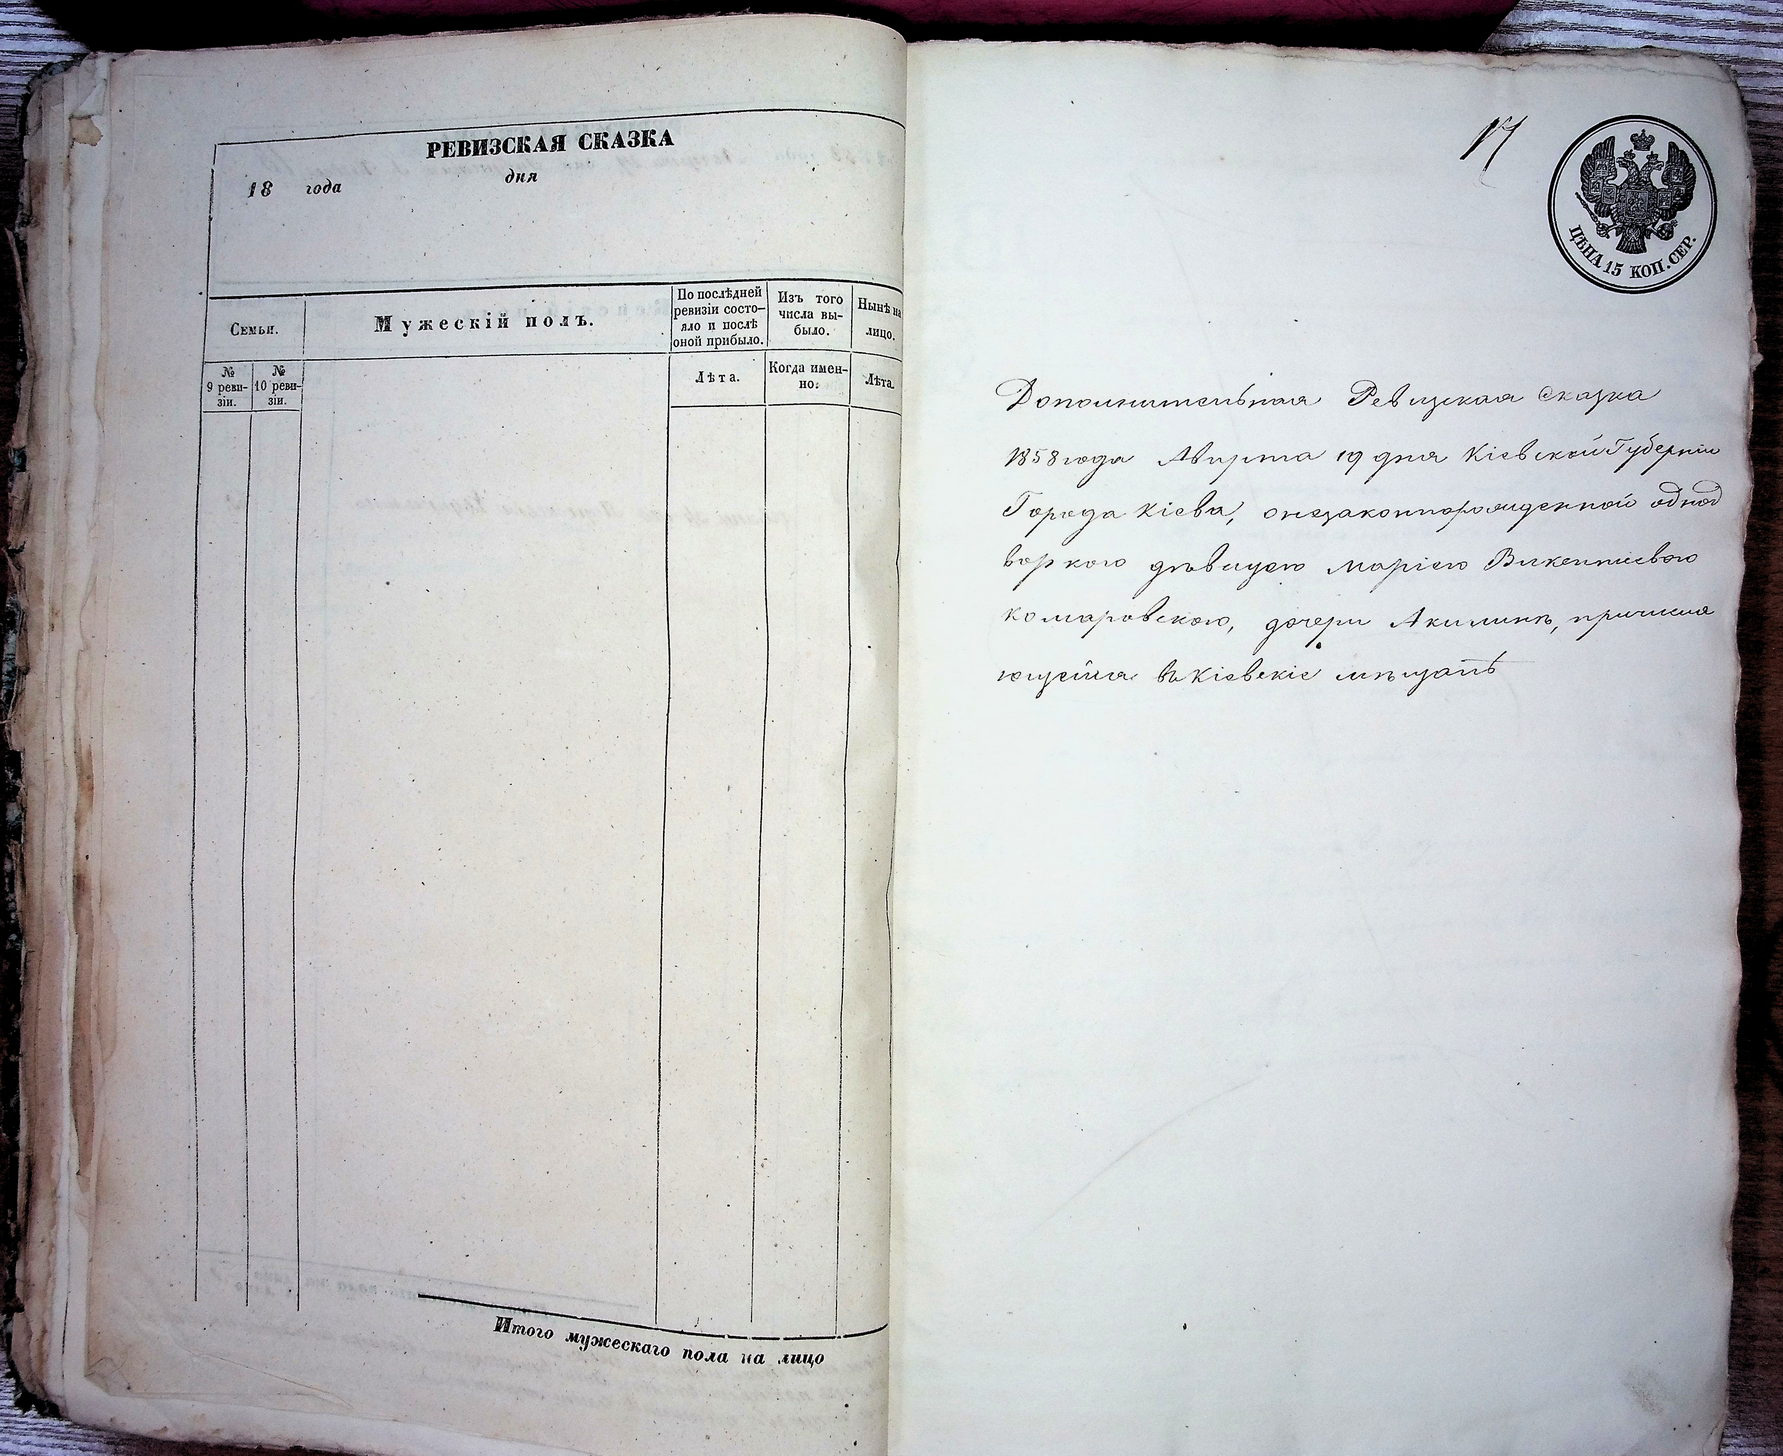 РЕВИЗСКАЯ СКАЗКА
18 года дня
Семьи.
Мужескій полъ.
По послѣдней ревизіи состо-
яло и послѣ
оной прибыло.
Изъ того
числа вы-
было.
Нынѣ на
лицо.
№
9 реви-
зіи.
№
10 реви-
зіи.
Лѣта.
Когда имен-
но:
Лѣта.
Итого мужескаго пола на лицо
17
ЦѢНА 15 КОП. СЕР.
Дополнительная Ревизская Сказка
1858 года Августа 19 дня Кіевской Губерніи
Города Кіева, о незаконнорожденной однод
воркою дѣвицею Маріею Викентіевою
Комаровскою, дочери Акилинѣ, причисля
ющейся въ Кіевскіе мѣщанѣ